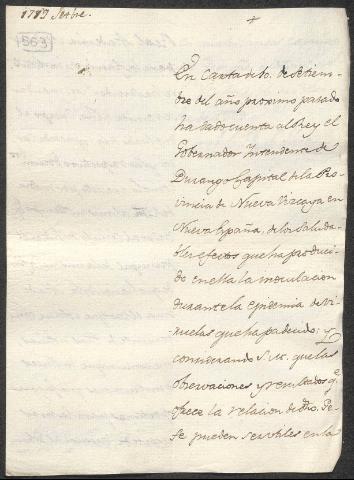 1799 Setbre.
563
+
En Carta de 10. de Setiem-
bre del año proximo pasado
ha dado cuenta al Rey el
Gobernador Intendente de
Durango Capital de la Pro-
vincia de Nueva Vizcaya en
Nueva España, de los saluda-
bles efectos que ha produci-
do en ella la inoculacion
durante la epidemia de Vi-
ruelas que ha padecido: y
considerando S. M. que las
observaciones y resultados qe.
ofrece la relacion de dho. Ge-
fe pueden ser utiles en la